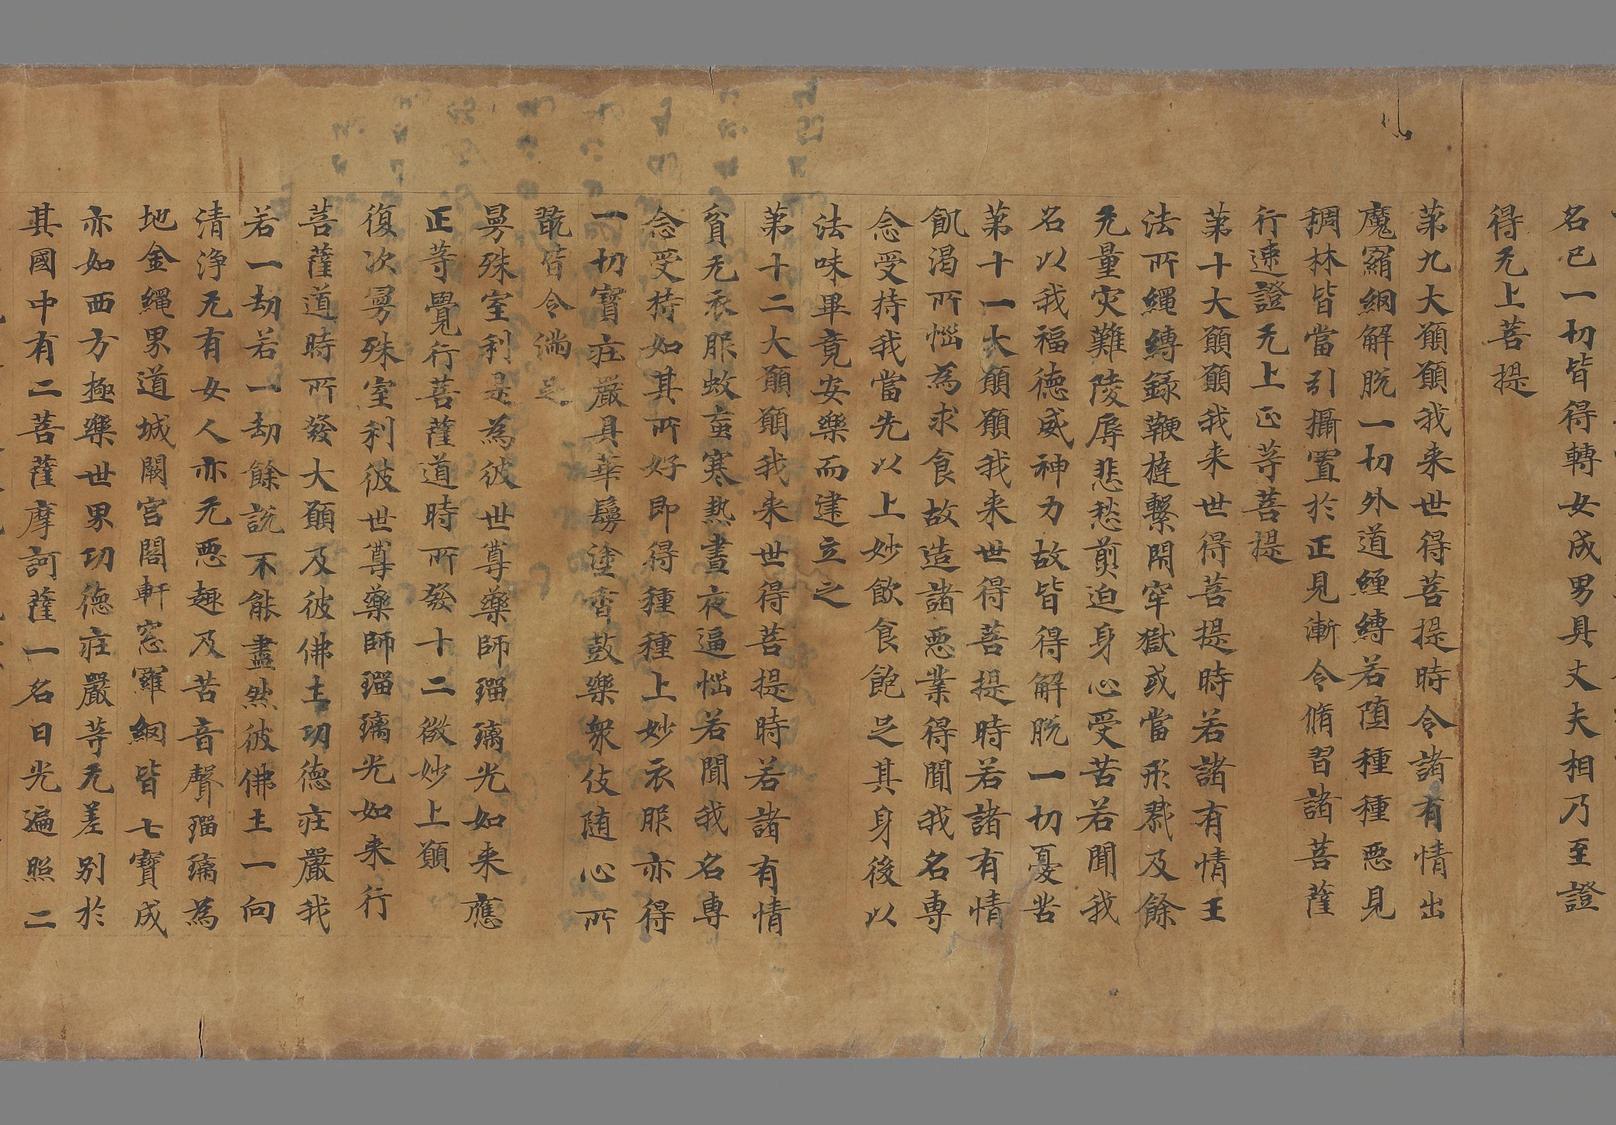 名已一切皆得轉女成男具丈夫相乃至證
得无上菩提
第九大願願我来世得菩提時令諸有情出
魔羂網解脫一切外道纏縛若墮種種惡見
稠林皆當引攝置於正見漸令脩習諸菩薩
行速證无上正等菩提
第十大願願我来世得菩提時若諸有情王
法所繩縛錄鞭撻繫閇窂獄或當形戮及餘
无量灾難陵辱悲愁煎迫身心受苦若聞我
名以我福德威神力故皆得解脫一切憂苦
第十一大願願我来世得菩提時若諸有情
飢渴所惱為求食故造諸惡業得聞我名專
念受持我當先以上妙飲食飽足其身後以
法味畢竟安樂而建立之
第十二大願願我来世得菩提時若諸有情
貧无衣服蚊䖟寒熱晝夜逼惱若聞我名專
念受持如其所好即得種種上妙衣服亦得
一切寶疘嚴具華鬘塗香鼓樂衆伎随心所
翫皆令滿足
曼殊室利是為彼世尊藥師瑠璃光如来應
正等覺行菩薩道時所發十二微妙上願
復次曼殊室利彼世尊藥師瑠璃光如来行
菩薩道時所發大願及彼佛土功德疘嚴我
若一劫若一劫餘說不能盡然彼佛土一向
清淨无有女人亦无惡趣及苦音聲瑠璃為
地金繩界道城闕宮閣軒窓羅網皆七寶成
亦如西方極樂世界功德疘嚴等无差别於
其國中有二菩薩摩訶薩一名日光遍照二